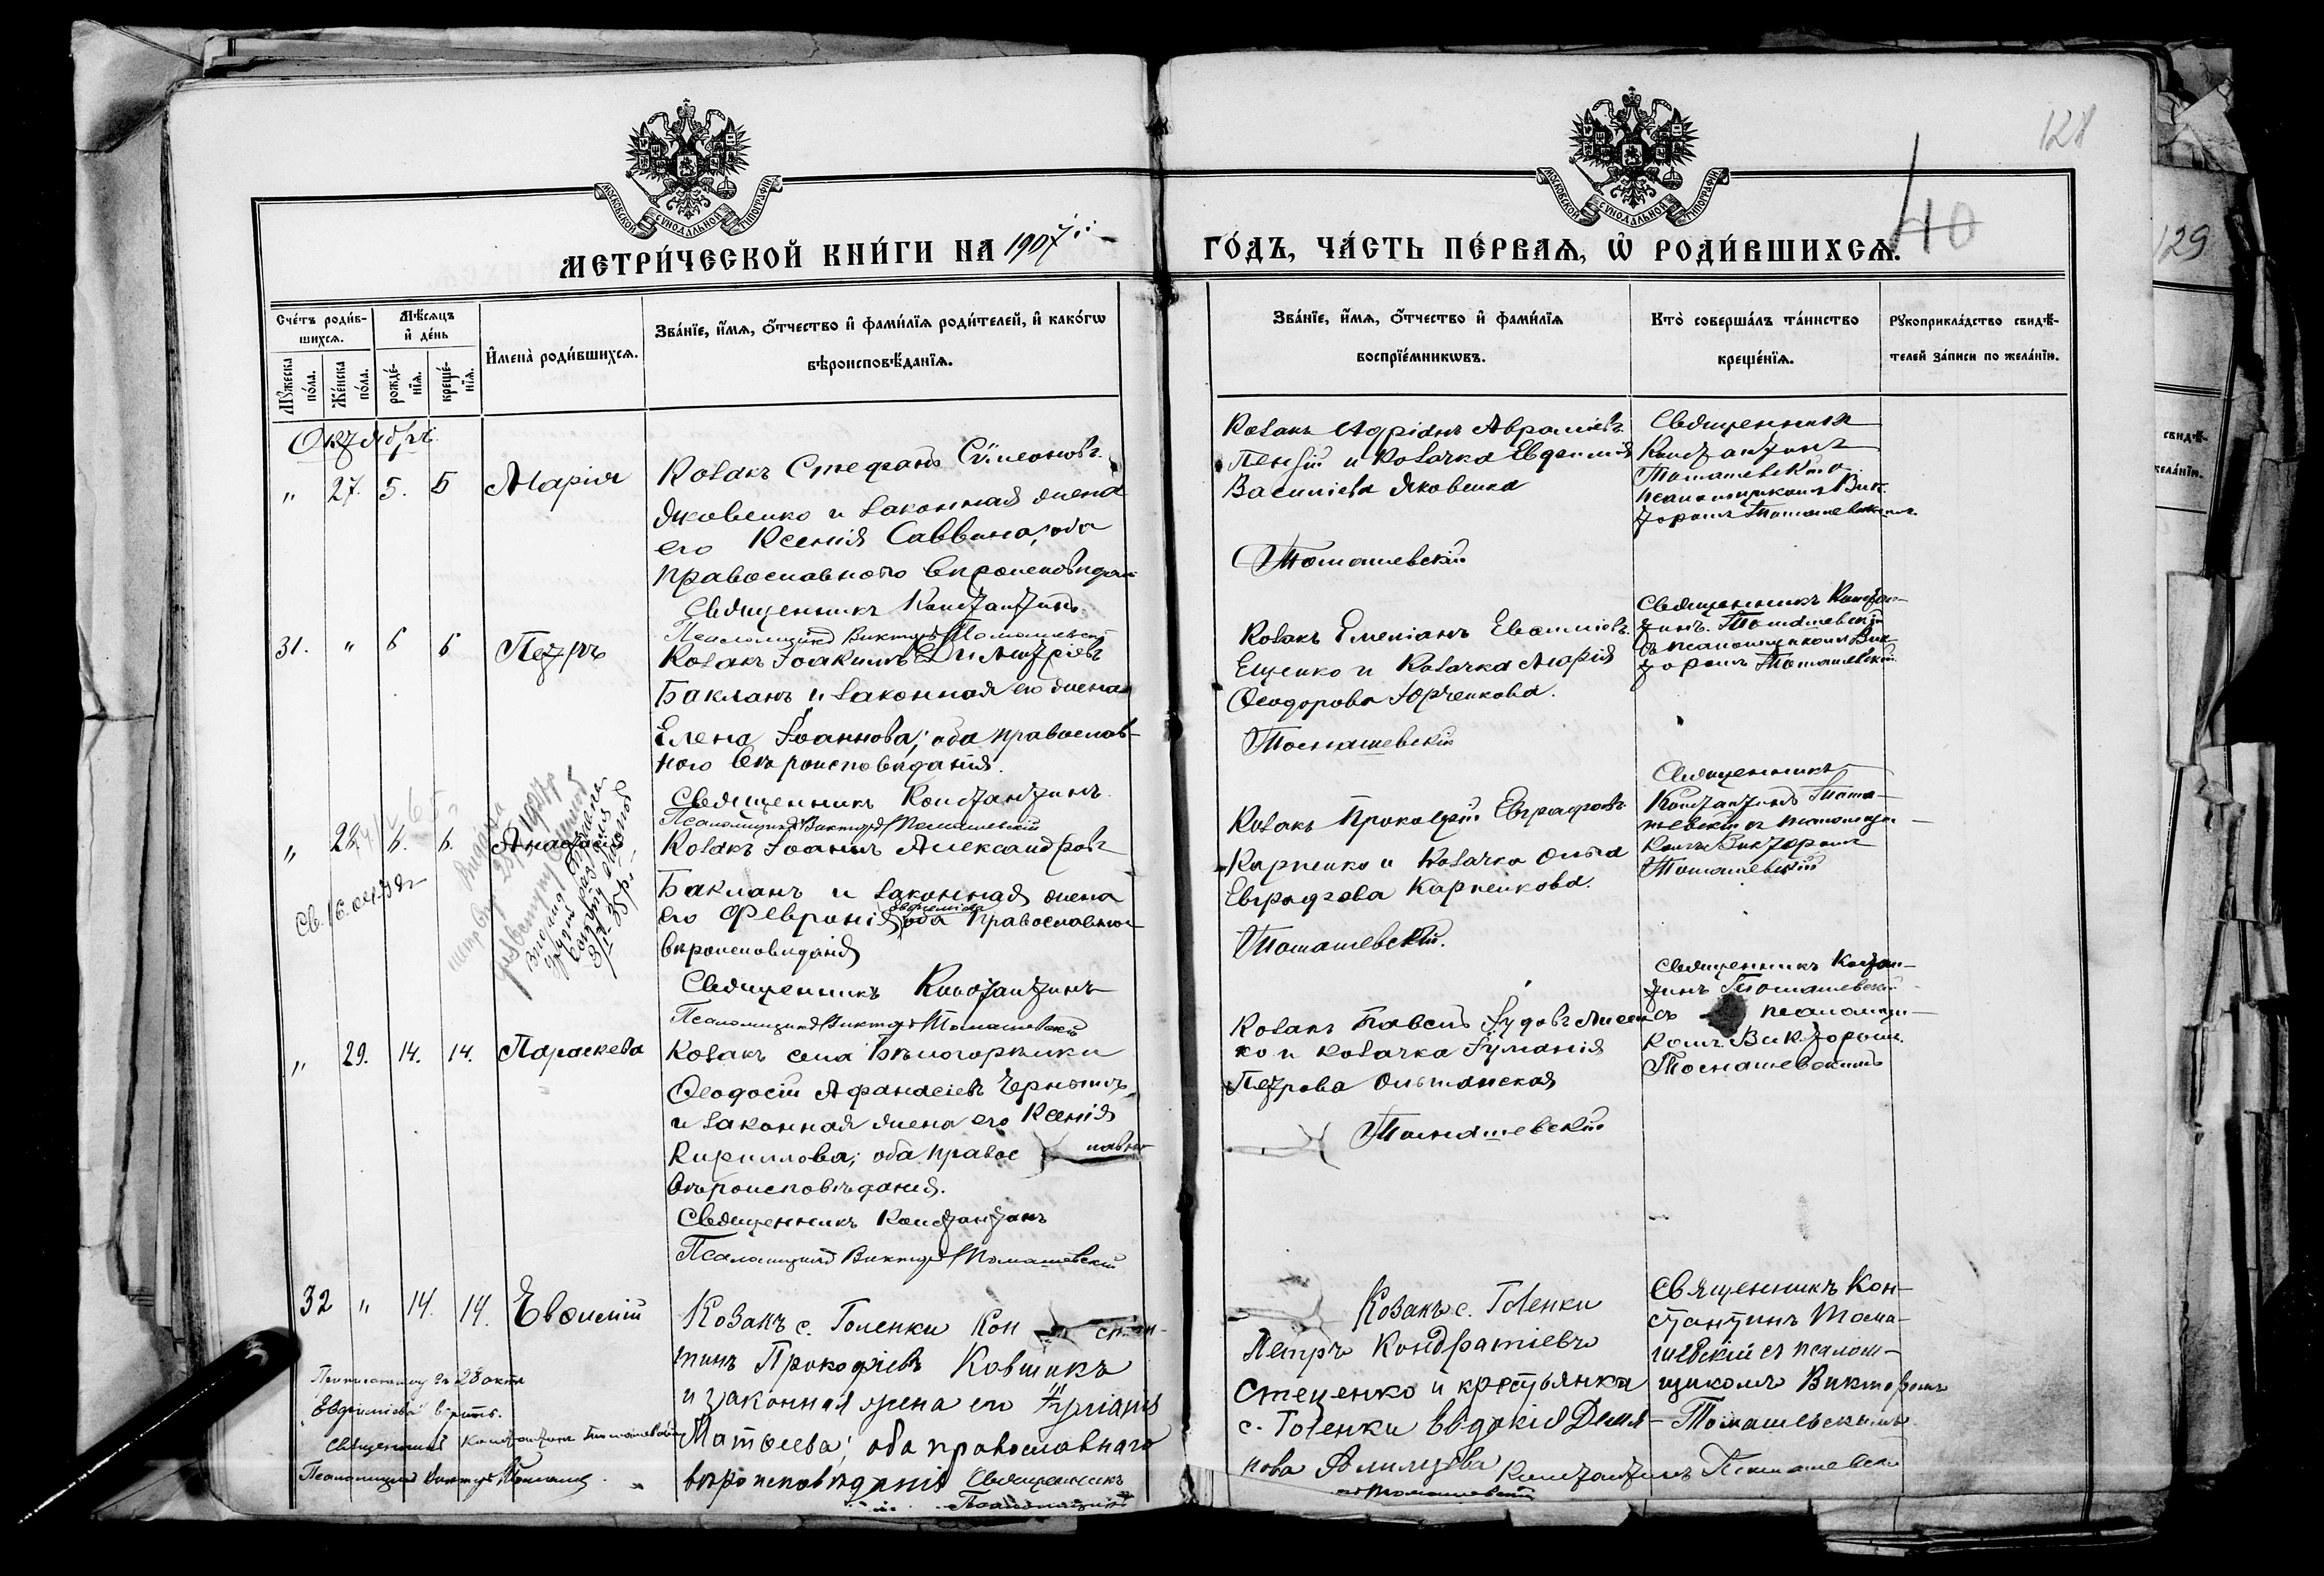 128
40
129
МОСКОВСКОЙ СѴНОДАЛЬНОЙ ТИПОГРАФІИ
МОСКОВСКОЙ СѴНОДАЛЬНОЙ ТИПОГРАФІИ
МЕТРИ́ЧЕСКОЙ КНИ́ГИ НА 1907й
ГО́ДЪ, ЧА́СТЬ ПЕ́РВАѦ, Ѽ РОДИ́ВШИХСѦ.
Сче́тъ роди́в-
шихсѧ.
Мѣ́сѧцъ
и҆ де́нь
Мꙋ́жеска
по́ла.
Же́нска
по́ла.
рожде́-
нїѧ.
креще́-
нїѧ.
И҆мена̀ роди́вшихсѧ.
Зва́нїе, и҆́мѧ, ѻ҆́тчество и҆ фами́лїѧ роди́телей, и҆ како́гѡ
вѣроисповѣ́данїѧ.
Зва́нїе, и҆́мѧ, ѻ҆́тчество и҆ фами́лїѧ
воспрїе́мникѡвъ.
Кто̀ соверша́лъ та́инство
креще́нїѧ.
Рꙋкоприкла́дство свидѣ́-
телей за́писи по жела́нїю.
свидѣ́-
жела́нїю.
Октябрь
" 27. 5. 5 Марія
Козакъ Стефанъ Сѵмеоновъ
Яковенко и законная жена
его Ксенія Саввина; оба
православного вѣроисповѣдан
Священникъ Константинъ
Псаломщикъ Викторъ Томашевскій
Козакъ Адріанъ Авраміевъ
и Козачка Евфимія
Василіева Яковенко
Томашевскій
Священникъ
Константинъ
Томашевскій
псаломщикомъ Вик-
торомъ Томашевскимъ
31. " 6 6 Петръ
Козакъ Іоакимъ Димитріевъ
Бакланъ и законная его жена
Елена Іоаннова; оба православ-
ного вѣроисповѣданія.
Священникъ Константинъ
Псаломщикъ Викторъ Томашевскій
Козакъ Емеліанъ Евѳиміевъ
Ященко и Козачка Марія
Ѳеодорова Юрченкова.
Томашевскій
Священникъ Констан-
тинъ Томашевскій
съ псаломщикомъ Вик-
торомъ Томашевскій
" 28. 6. 6. Анастасія
Козакъ Іоаннъ Александровъ
Бакланъ и законная жена
его Февронія Евфиміева оба православного
вѣроисповѣданія
Священникъ Константинъ
Псаломщикъ Викторъ Томашевскій
Козакъ Прокофій Евграфовъ
Карпенко и козачка Ольга
Евграфова Карпенкова.
Томашевскій.
Священникъ
Константинъ Тома-
шевскій съ псаломщи-
комъ Викторомъ
Томашевскій
Выдана
" 29. 14. 14. Параскева
Козакъ села Бѣлогорѣлки
Ѳеодосій Афанасіевъ
и законная жена его Ксенія
Кириллова; оба правос лавно
вѣроисповѣданія.
Священникъ Константинъ
Псаломщикъ Викторъ Томашевскій
Козакъ Павелъ Іудовъ Лисен
ко и козачка Іуліанія
Петрова Ольшанская
Томашевскій
Священникъ Констан-
тинъ Томашевскій
съ псаломщи-
комъ Викторомъ
Томашевскимъ
32 " 14. 14. Евѳимій
Козакъ с. Голенки Кон стан-
тинъ Прокофіевъ Ковшикъ
и законная жена его Іуліанія
Матѳеева; оба православнаго
вѣроисповѣданія Священникъ
Псаломщикъ
Козакъ с. Голенки
Петръ Кондратіевъ
Стеценко и крестьянка
с. Голенки Евдокія Демья-
нова
Константинъ Томашевскій
Томашевскій
Священникъ Кон-
стантинъ Тома-
шевскій съ псалом-
щикомъ Викторомъ
Томашевскимъ
28 окт
"Евфиміева" вѣрить.
Священникъ Константинъ Томашевскій
Псаломщикъ Викторъ Томашев